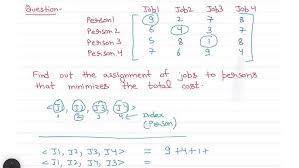 Question-
Job1 Job2 Job3 Job 4
Person1 9 2 7 8
Person 2 6 4 3 7
Person 3 5 8 1 8
Person 4 7 6 9 4
Find out the assignment of jobs to persons
that minimizes the total cost.
< J1, J2, J3, J4 >
Index
(Person)
< J1, J2, J3, J4 > = 9+4+1+
< J1, J2, J4, J3 > =